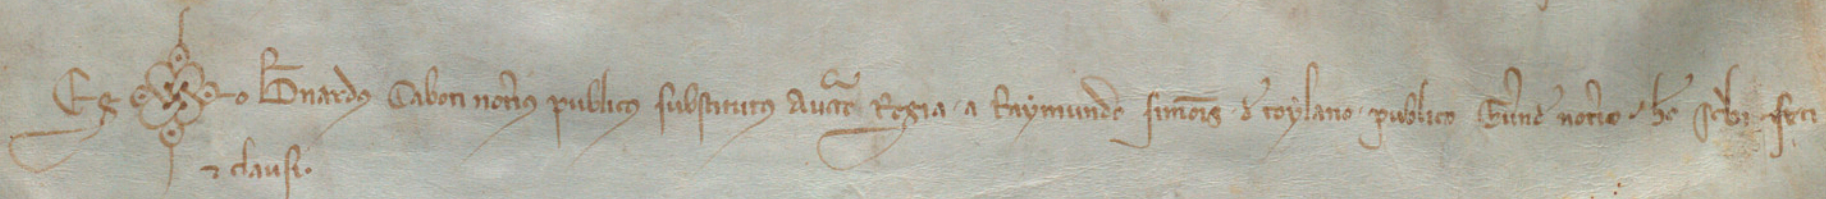 Eg o Bnardus Caboti notius publicus substitutus auctte Regia · a Raymundo simonis · d toylano · publico Gunde notio · hc scbi feci
⁊ clausi.